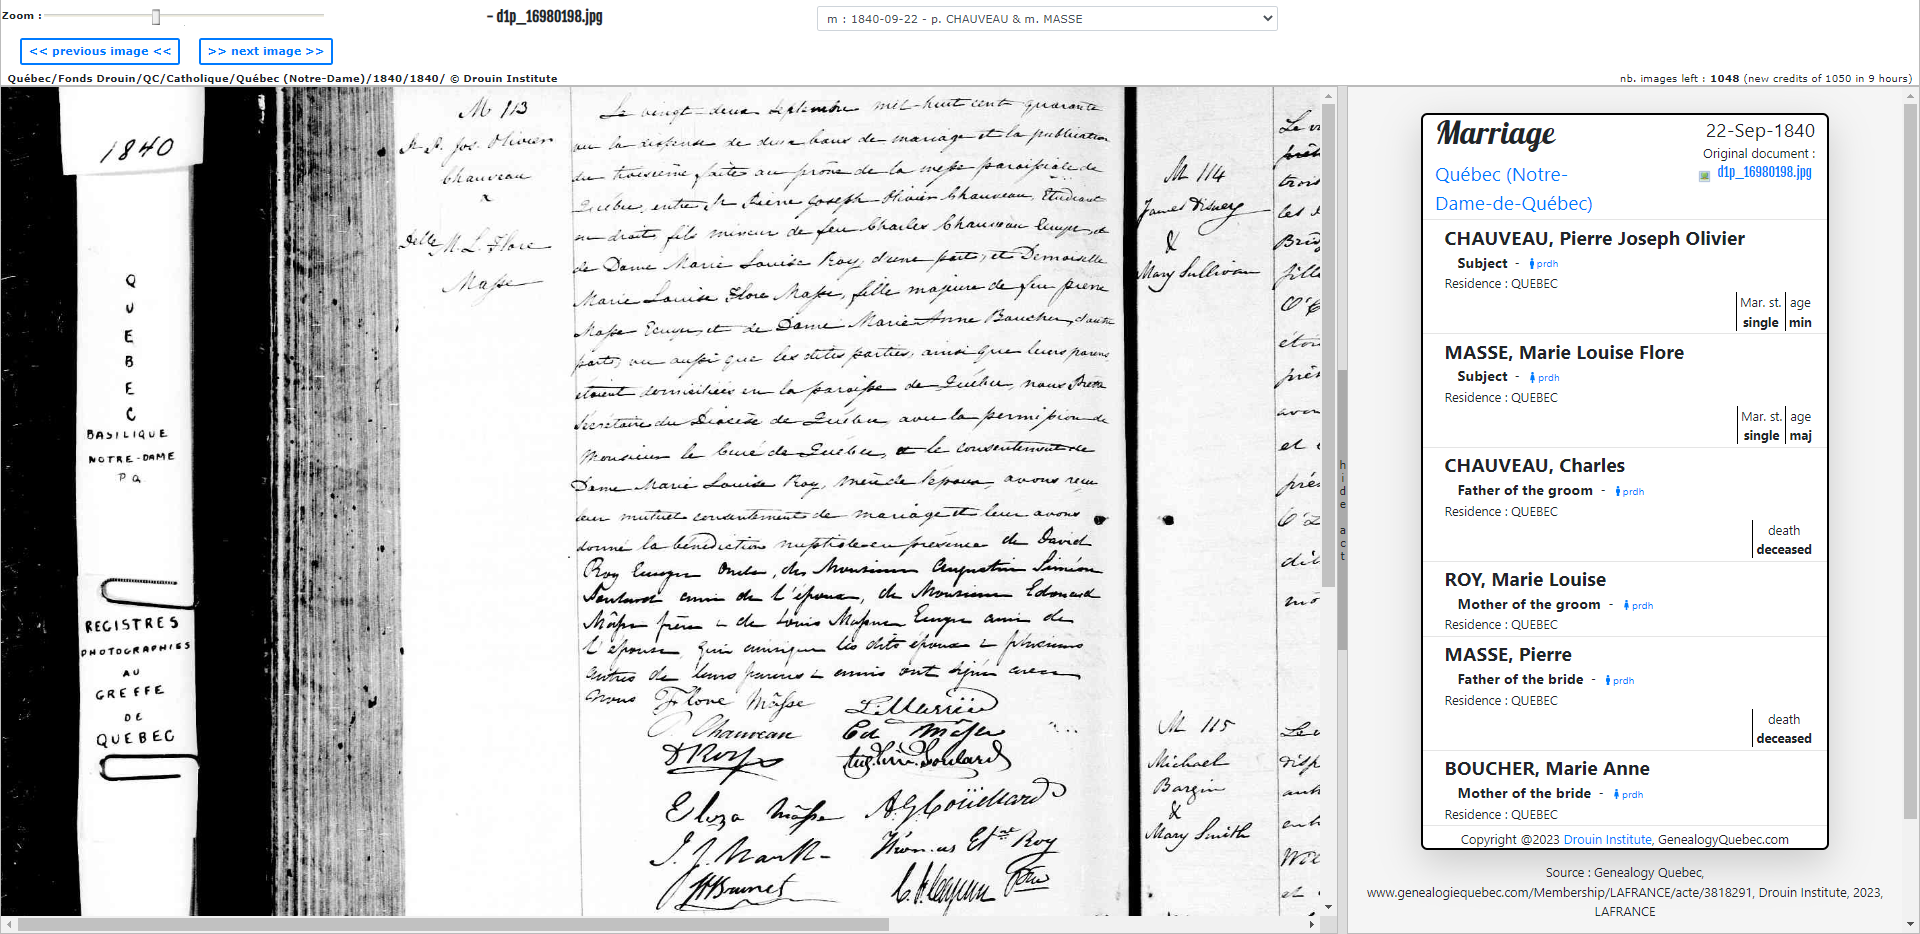 Zoom :
- d1p_16980198.jpg
m : 1840-09-22 - p. CHAUVEAU & m. MASSE
<< previous image <<
>> next image >>
Québec/Fonds Drouin/QC/Catholique/Québec (Notre-Dame)/1840/1840/ © Drouin Institute
nb. images left : 1048 (new credits of 1050 in 9 hours)
1840
QUEBEC
BASILIQUE
NOTRE-DAME
PQ
REGISTRES
PHOTOGRAPHIES
AU
GREFFE
DE
QUEBEC
M 113
Jos. Olivier
Chauveau
&
Delle M. L. Flore
Masse
Le vingt-deux septembre mil-huit cent quarante
vu la dispense de deux bans de mariage et la publication
du troisième faite au prône de la messe paroissiale de
Québec, entre Pierre Joseph Olivier Chauveau, Etudiant
en droit, fils mineur de feu Charles Chauveau Ecuyer, et
de Dame Marie Louise Roy, d'une part; et Demoiselle
Marie Louise Flore Masse, fille majeure de feu pierre
Masse Ecuyer, et de Dame Marie Anne Boucher, d'autre
part; vu aussi que les dites parties, ainsi que leurs parens
étoient domiciliées en la paroisse de Québec, nous Prêtre
Secrétaire du Diocèse de Québec, avec la permission de
Monsieur le Curé de Québec, et le consentement de
Dame Marie Louise Roy, mère de l'époux, avons reçu
leur mutuel consentement de mariage et leur avons
donné la bénédiction nuptiale en présence de David
Roy Ecuyer Oncle, de Monsieur Augustin Siméon
Soulard ami de l'époux, de Monsieur Edouard
Mâsse frère & de Louis Ecuyer ami de
l'épouse, qui ainsi que les dits époux & plusieurs
autres de leurs parens & amis ont signé avec
nous
Flore Mâsse
P. Chauveau
Ed Mâsse
D Roy
Soulard
Eliza Mâsse
A. G. Couillard
Thomas Et. Roy
Ptre
M 114
James
&
Mary Sullivan
M 115
Michael
&
Mary Smith
hide act
Marriage
22-Sep-1840
Original document :
d1p_16980198.jpg
Québec (Notre-
Dame-de-Québec)
CHAUVEAU, Pierre Joseph Olivier
Subject - prdh
Residence : QUEBEC
Mar. st. age
single min
MASSE, Marie Louise Flore
Subject - prdh
Residence : QUEBEC
Mar. st. age
single maj
CHAUVEAU, Charles
Father of the groom - prdh
Residence : QUEBEC
death
deceased
ROY, Marie Louise
Mother of the groom - prdh
Residence : QUEBEC
MASSE, Pierre
Father of the bride - prdh
Residence : QUEBEC
death
deceased
BOUCHER, Marie Anne
Mother of the bride - prdh
Residence : QUEBEC
Copyright @2023 Drouin Institute, GenealogyQuebec.com
Source : Genealogy Quebec,
www.genealogiequebec.com/Membership/LAFRANCE/acte/3818291, Drouin Institute, 2023,
LAFRANCE